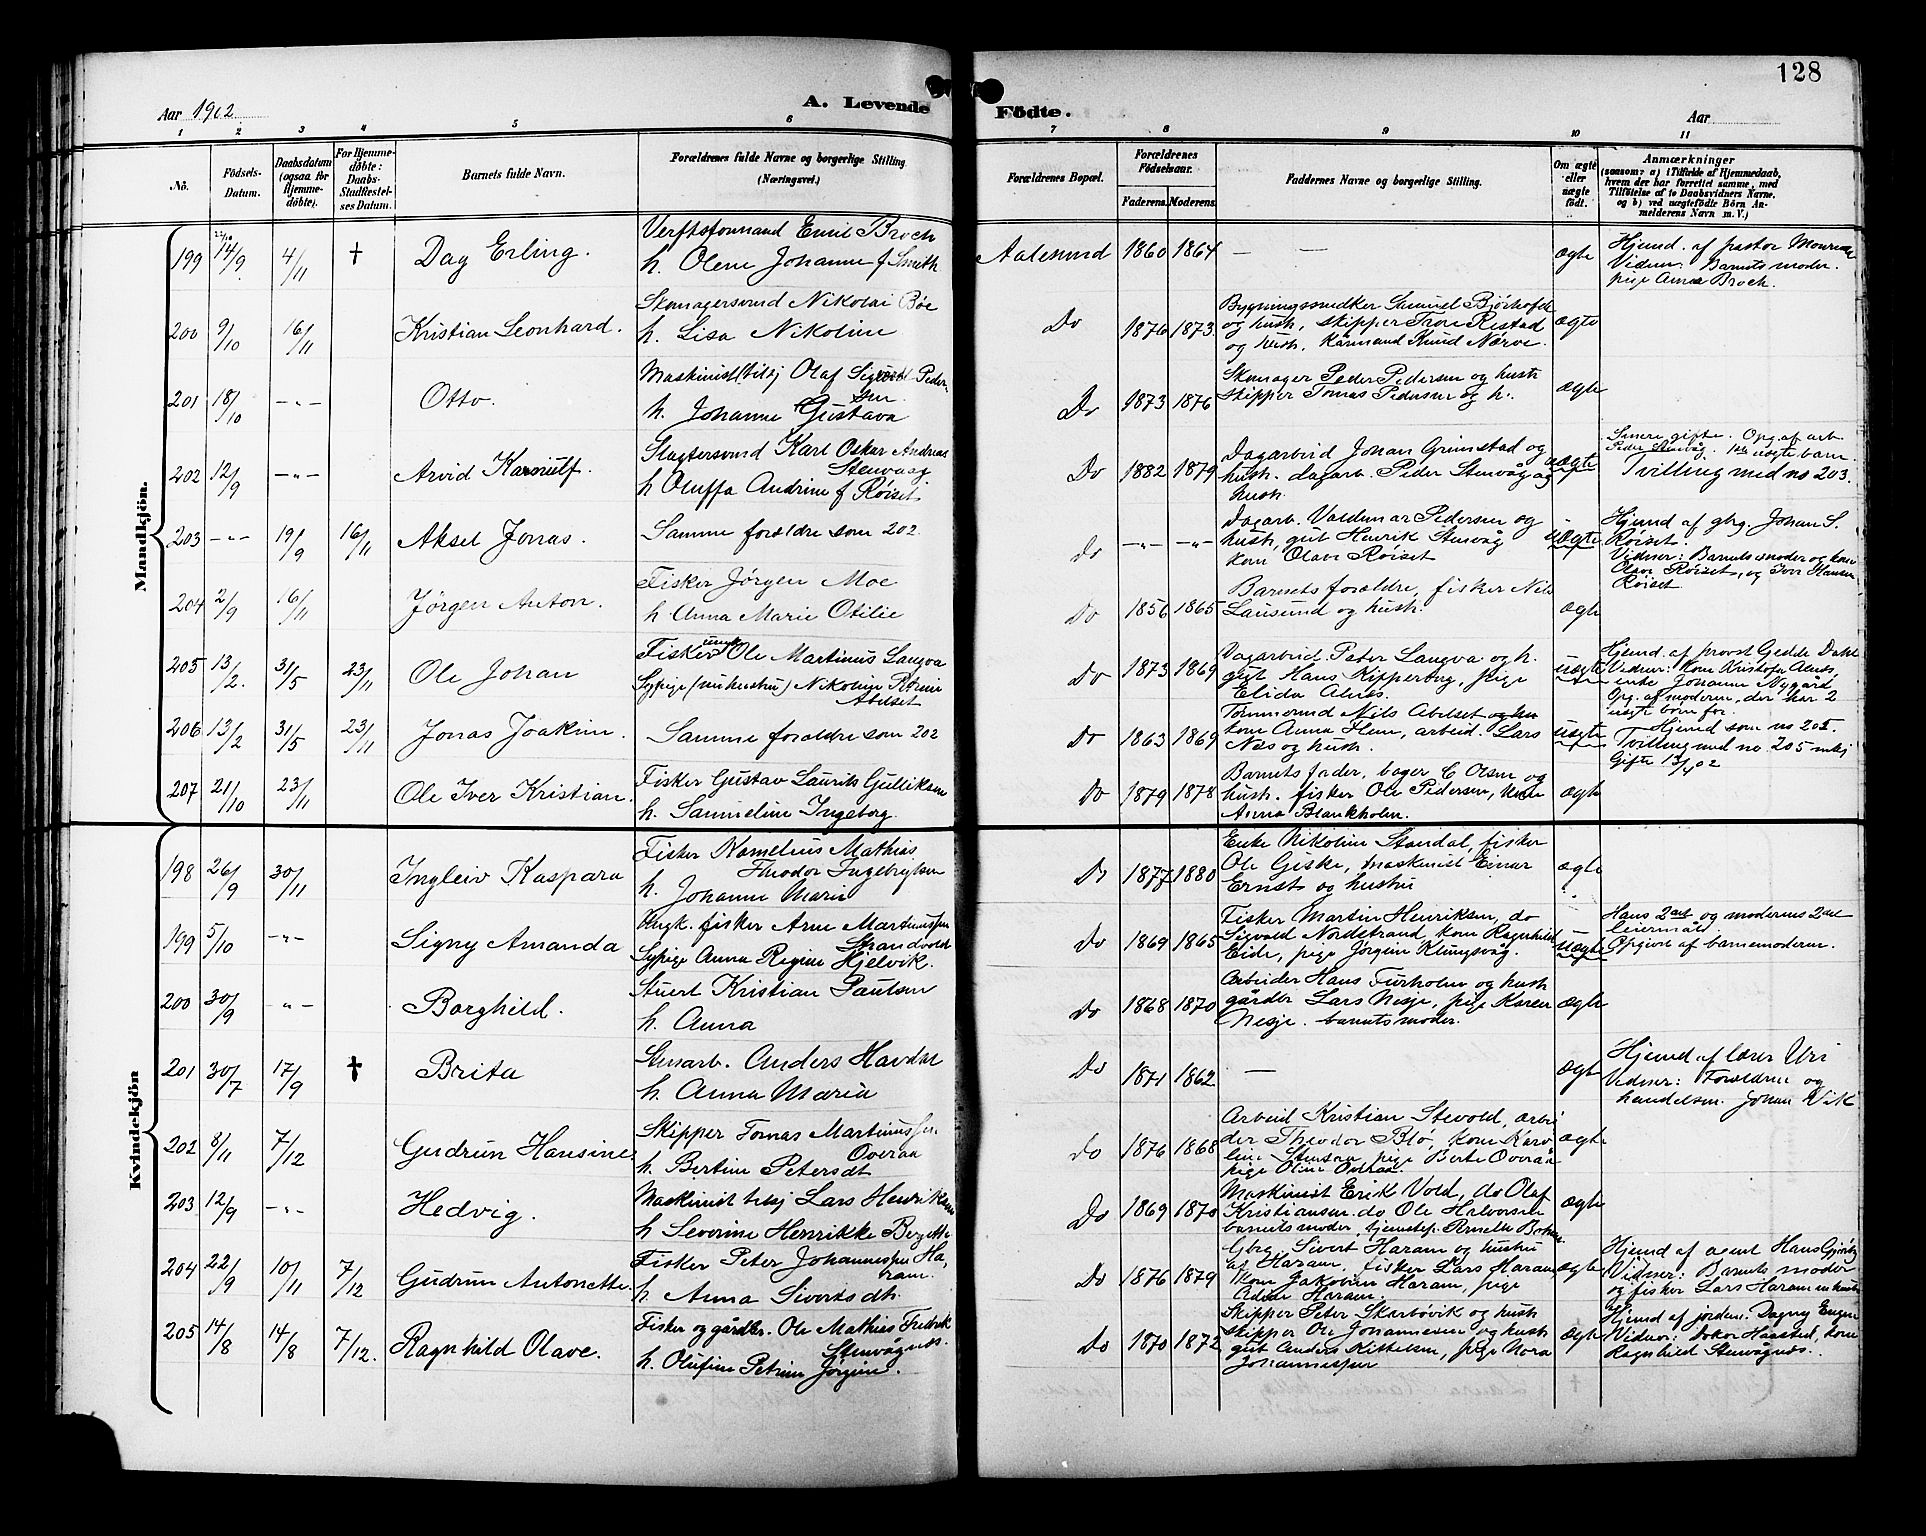 128
Aar 1902
A. Levende
Födte.
Aar
1 2 3 4 5 6 7 8 9 10 11
No.
Födsels-Datum.
Daabsdatum (ogsaa for Hjemmedöbte).
For Hjemmedöbte: Daabs-Stadfæstelses Datum.
Barnets fulde Navn.
Forældrenes fulde Navne og borgerlige Stilling (Næringsvei.)
Forældrenes Bopæl.
Forældrenes Födselsaar.
Faderens. Moderens.
Faddernes Navne og borgerlige Stilling.
Om ægte eller uægte födt.
Anmærkninger
(saasom: a) i Tilfælde af Hjemmedaab, hvem der har forrettet samme, med Tilföielse af to Daabsvidners Navne, og b) ved uægtefödte Börn Anmelderens Navn m. V.)
Mandkjön.
199 14/9 4/11 † Dag Erling.
Verftsformand Emil Broch
h. Olene Johanne f Smith
Aalesund 1860 1864 — ægte
Hjemd. af pastor
Vidner: Barnets moder.
pige Anna Broch.
200 9/10 16/11 Kristian Leonhard.
Skomagersvend Nikolai Bøe
h. Lisa Nikoline
Do 1876 1873
Bygningssnedker Samuel
og hust, skipper Tron Ristad
og hust. Kármand Knud Nærve.
ægte
201 18/10 -"- Otto.
Maskinist (tilsj Olaf Sigurd Pedersen
h. Johanne Gustava
Do 1873 1876
Skomager Peder Pedersen og hustr
skipper Tomas Pedersen og h.
ægte
202 12/9 -"- Arvid Karnulf.
Slagtersvend Karl Oskar Andreas
Stenvaag
h Oluffa Andrine f Røiset
Do 1882 1879
Dagarbeid Johan Grimstad og
hust. dagarb. Peder Stenvåg og
hust.
uægte
Senere gifte. Opg. af arb.
Peder Stenvåg. 1ste uægte barn.
Tvilling med no 203.
203 -"- 19/9 16/11 Aksel Jonas.
Samme forældre som 202
do -"- -"-
Dagarb. Valdemar Pedersen og
hust, gut Henrik Stenvåg
kone Olave Røiset
uægte
Hjemd af gbrg. Johan S.
Røiset.
Vidner: Barnets moder og kone
Olave Røiset, og Iver Hansen
Røiset
204 2/9 16/11 Jörgen Anton.
Fisker Jørgen Moe
h Anna Marie Otilie
Do 1856 1865
Barnets forældre, fisker Nils
Lausund og hust.
ægte
205 13/2. 31/5 23/11 Ole Johan
Fisker ungk. Ole Martinus Langva
Sypige (nu hustru) Nikoline Petrine
Abelset
Do 1873 1869
Dagarbeid. Peter Langva og h.
gut Hans Kipperberg, pige
Elida Alnes.
uægte
Hjemd. af provst Gedde Dahl
Vidner: Kone Kristofer Alnes,
enke Johanne Nygård
Opg. af moderen, der har 2
uægte børn før.
206 13/2 31/5 23/11 Jonas Joakim.
Samme forældre som 202
Do 1863 1869
Tømmermd Nils Abelset og hu
kone Anna Hem, arbeid. Lars
Næs og hust.
uægte
Hjemd som no 205.
Tvilling med no 205
Gifte 13/4 02
207 21/10 23/11 Ole Iver Kristian.
Fisker Gustav Laurits Gulliksen
h. Sanneline Ingeborg.
Do 1879 1878
Barnets fader, bager C Olsen og
hust. fisker Ole Pedersen, kone
Anna Blankholm.
ægte
Kvindekjön
198 26/9 30/11 Ingleiv Kaspara
Fisker Kornelius Mathias
Theodor Ingebrigtsen
h. Johanne Marie
Do 1877 1880
Enke Nikoline Standal, fisker
Ole Giske, maskinist Einar
Ernst og hustru
ægte
199 5/10 -"- Signy Amanda
Ungk. fisker Arne Martinussen
Strandvold
Sypige Anna Regine Hjelvik.
Do 1869 1865
Fisker Martin Henriksen, do
Sigvald Nordstrand, kone Ragnhild
Eide, pige Jörgine Klungsvåg.
uægte
Hans 2det og moderens 2det
leiermål.
Opgivet af barnemoderen.
200 30/9 -"- Borghild.
Stuert Kristian Paulsen
h. Anna
do 1868 1870
Arbeider Hans Furholm og hust
gårdbr Lars Nesje, pige Karen
Nesje. barnets moder.
ægte
201 30/7 17/9 † Brita
Stenarb. Anders Havdal
h. Anna Maria
Do 1871 1862 — ægte
Hjemd af lærer Uri
Vidner: Forældrene og
handelsm. Johan Vik
202 8/11 7/12 Gudrun Hansine.
Skipper Tomas Martinussen
Overaa
h. Bertine Petersdt
do 1876 1868
Arbeid Kristian Stevold, arbei
der Theodor Blø, kone Karo
line Stensaa, pige Berte Overåa
pige Oline
ægte
203 12/9 -"- Hedvig.
Maskinist tilsj Lars Henriksen
h Severine Henrikke Bergette
Do 1869 1870
Maskinist Erik Vold, do Olaf
Kristiansen. do Ole Halvorsen
barnets moder, tjenestep.
ægte
204 22/9 10/11 7/12 Gudrun Antonette.
Fisker Peter Johannessen Ha,
ram.
h. Anna Sivertsdt.
Do 1876 1879
Gbrg Sivert Haram og hustru
af Haram, fisker Lars Haram,
kone Jakobine Haram, pige
Adine Haram.
ægte
Hjemd af agent Hans
Vidner: Barnets moder
og fisker Lars Haram
205 14/8 14/8 7/12. Ragnhild Olave.
Fisker og gårdbr. Ole Mathias Fredrik
Stenvågnæs.
h. Olufine Petrine Jørgine.
Do 1870 1872
Skipper Peter Skarbövik og hust
skipper Ole Johannesen og hust
gut Anders Kittelsen, pige Nora
Johannessen
ægte
Hjemd af jordem. Dagny Engen
Vidner: Oskar Haasted, kone
Ragnhild Stenvågnæs.